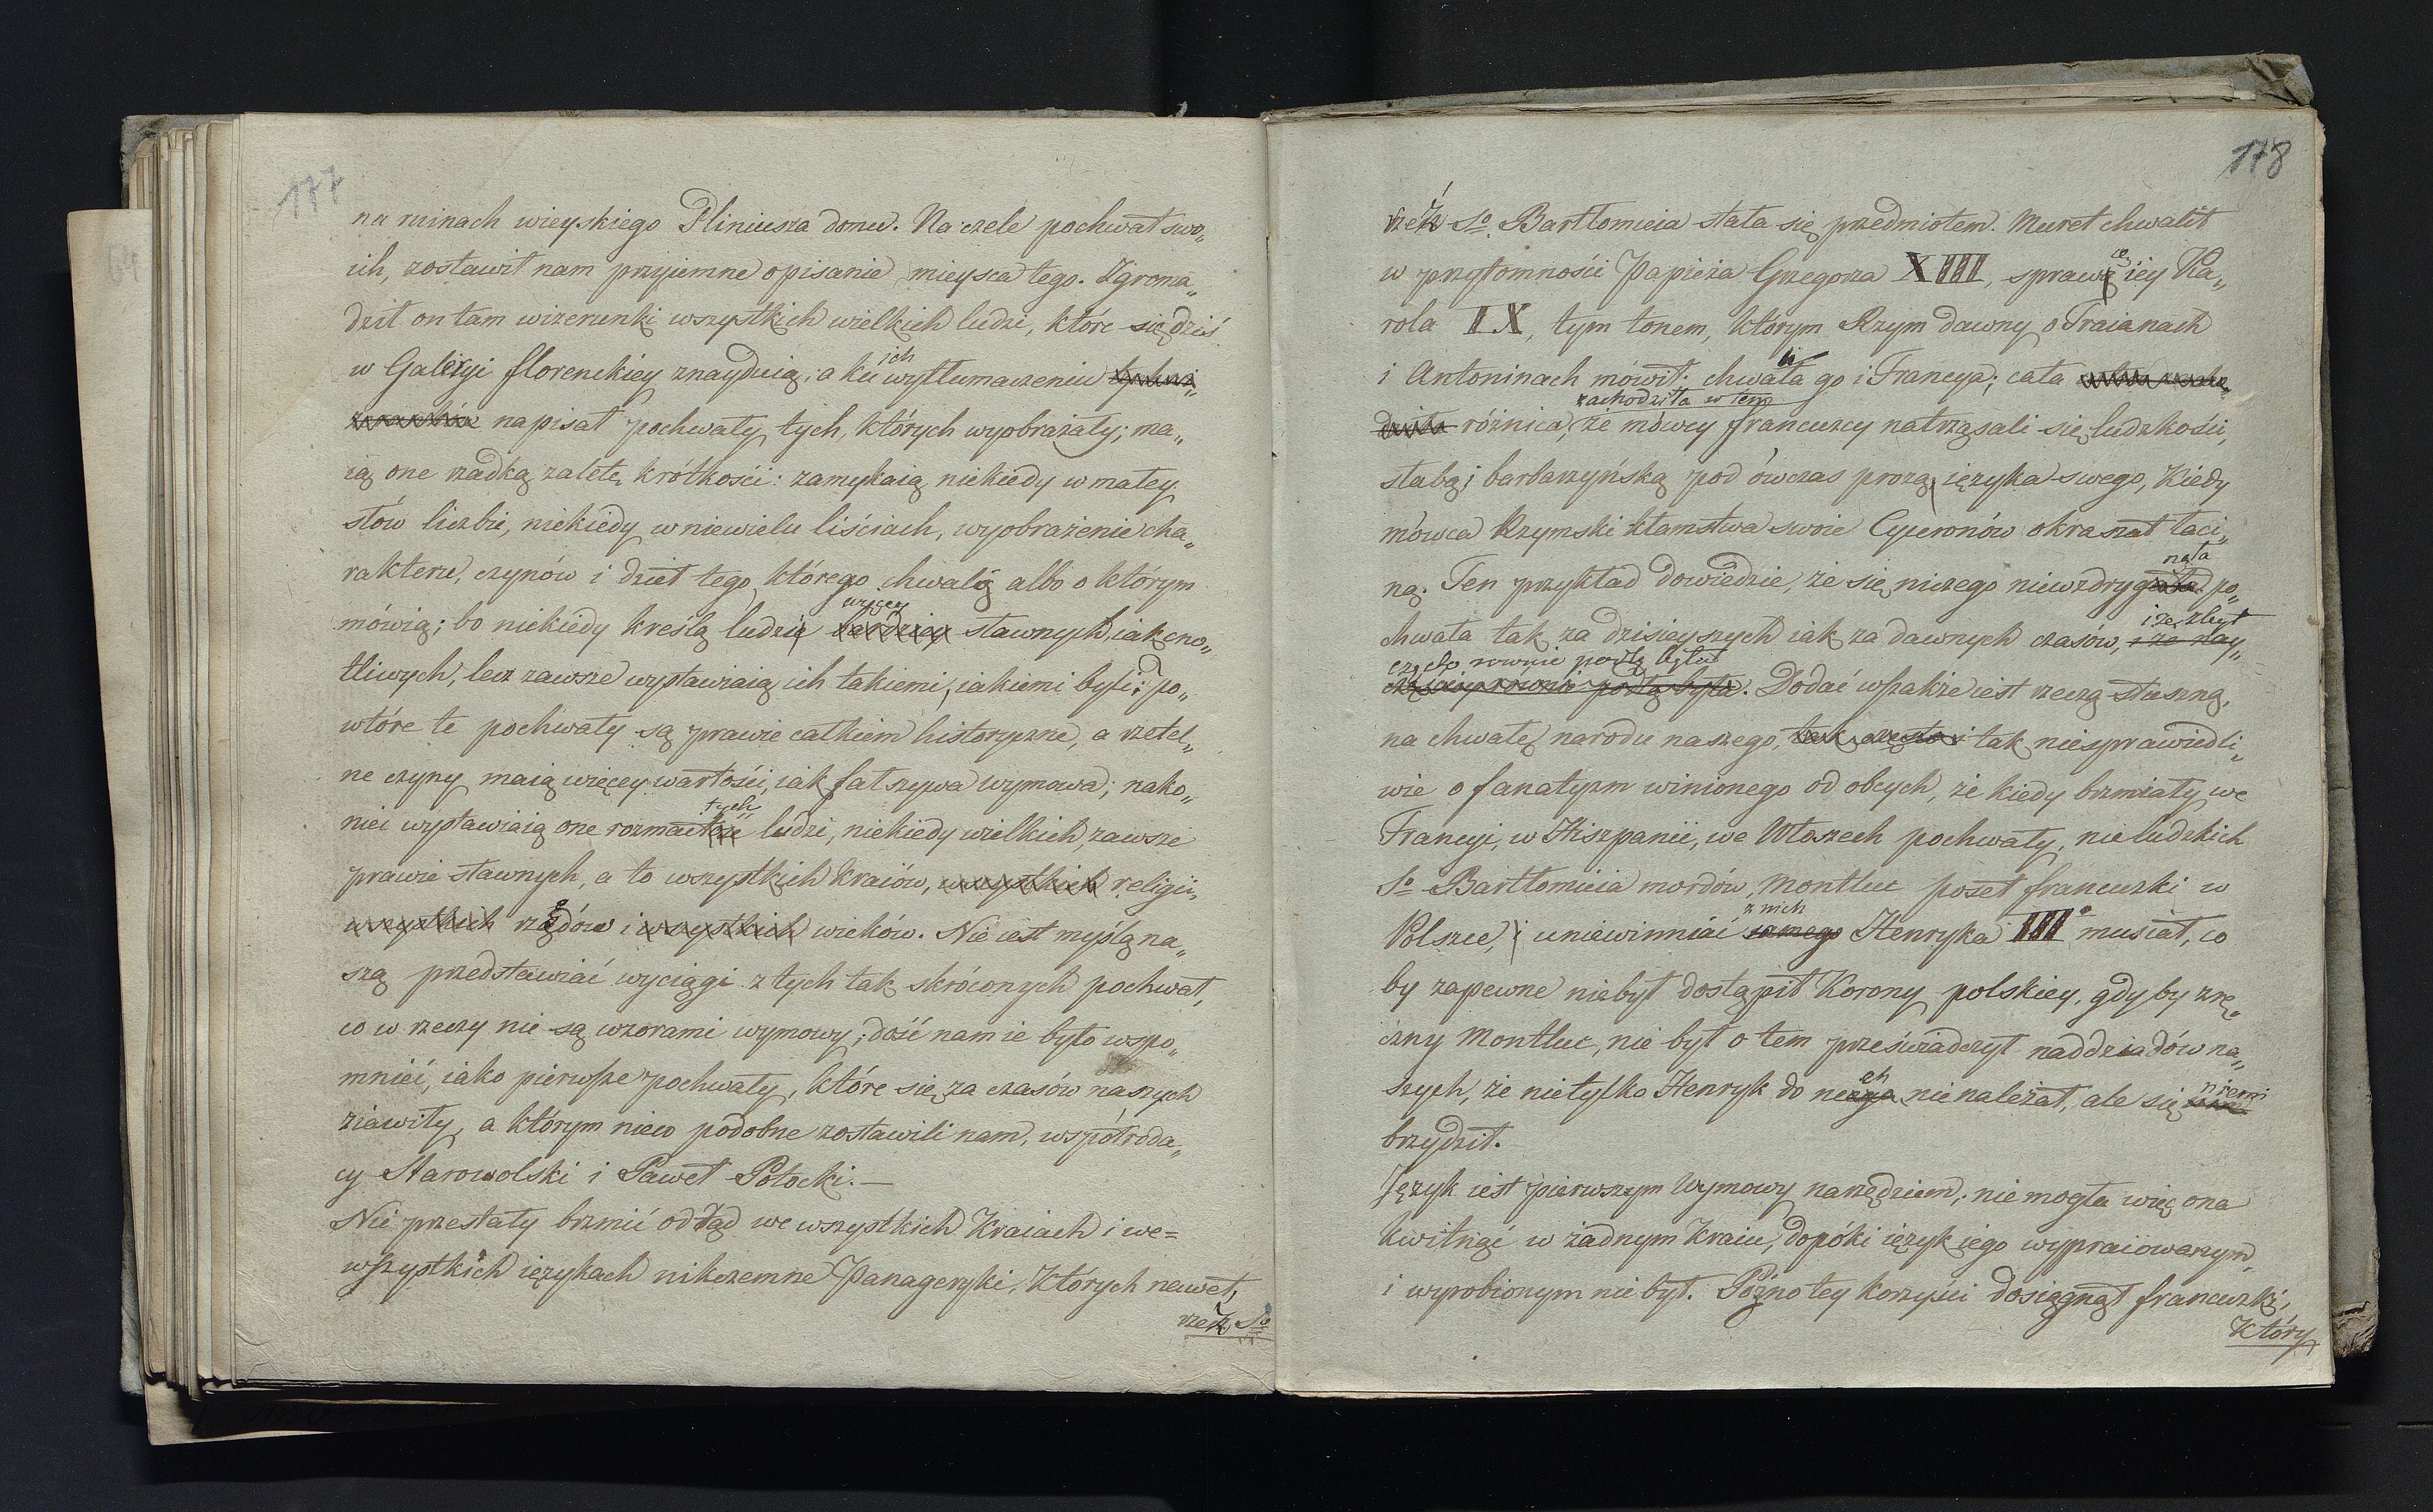 177
na ruinach wieyskiego Pliniusza domu. Na czele pochwał swo„
ich, zostawił nam przyiemne opisanie mieysca tego. Zgroma„
dził on tam wizerunki wszystkich wielkich ludzi, które się dziś
w Galeryi florenckiey znayduią; a ku ich wytłumaczeniu
napisał pochwały tych, których wyobrażały; ma„
ią one rzadką zaletę krótkości: zamykaią niekiedy w małey
słów liczbie, niekiedy w niewielu liściach, wyobrażenie cha„
rakteru, czynów i dzieł tego, którego chwalą albo o którym
mówią; bo niekiedy kreślą ludzi więcey bardziey sławnych, iak cno„
tliwych, lecz zawsze wystawiaią ich takiemi, iakiemi byli: po„
wtóre te pochwały są prawie całkiem historyczne, a rzetel„
ne czyny maią więcey wartości, iak fałszywa wymowa; nako„
niec wystawiaią one rozmaitych ludzi, niekiedy wielkich, zawsze
prawie sławnych, a to wszystkich kraiów, wszystkich religii,
wszystkich rządów i wszystkich wieków. Nie iest myślą na„
szą przedstawiać wyciągi z tych tak skróconych pochwał,
co w rzeczy nie są wzorami wymowy; dość nam ie było wspo„
mnieć, iako pierwsze pochwały, które się za czasów naszych
ziawiły, a którym nieco podobne zostawili nam, współroda„
cy Starowolski i Paweł Potocki.—
Nie przestały brzmić odtąd we wszystkich Kraiach i we=
wszystkich ięzykach nikczemne Panageryki, których nawet,
rzeź So
178
rzeź So Bartłomieia stała się przedmiotem. Muret chwalił
w przytomności Papieża Grzegorza XIII, sprawcę iey Ka„
rola IX, tym tonem, którym Rzym dawny o Traianach
i Antoninach mówił: chwaliła go i Francya; cała
zachodziła w tem
różnica, że mówcy francuzcy natrząsali się ludzkości,
słabą i barbarzyńską pod ówczas prozą ięzyka swego, kiedy
mówca Rzymski kłamstwa swoie Cyceronów okraszał łaci„
ną. Ten przykład dowiedzie, że się niczego niewzdrygnęła po„
chwała tak za dzisieyszych iak za dawnych czasów, i że zbyt i że nay„
często równie podłą była
częściey równie podłą była. Dodać wszakże iest rzeczą słuszną,
na chwałę narodu naszego, tak często i tak niesprawiedli„
wie o fanatyzm winionego od obcych, że kiedy brzmiały we
Francyi, w Hiszpanii, we Włoszech pochwały, nieludzkich
So Bartłomieia mordów, Montluc poseł francuzki w
Polszcze, i uniewinniać z nich samego Henryka III musiał, co
by zapewne niebył dostąpił Korony polskiey, gdyby zrę„
czny Montluc, nie był o tem przeświadczył naddziadów na„
szych, że nietylko Henryk do nich nie należał, ale się niemi
brzydził.
Ięzyk iest pierwszym Wymowy narzędziem; nie mogła więc ona
kwitnąć w żadnym Kraiu, dopóki ięzyk iego wypracowanym
i wyrobionym nie był. Późno tey korzyści dosiągnął francuzki,
który